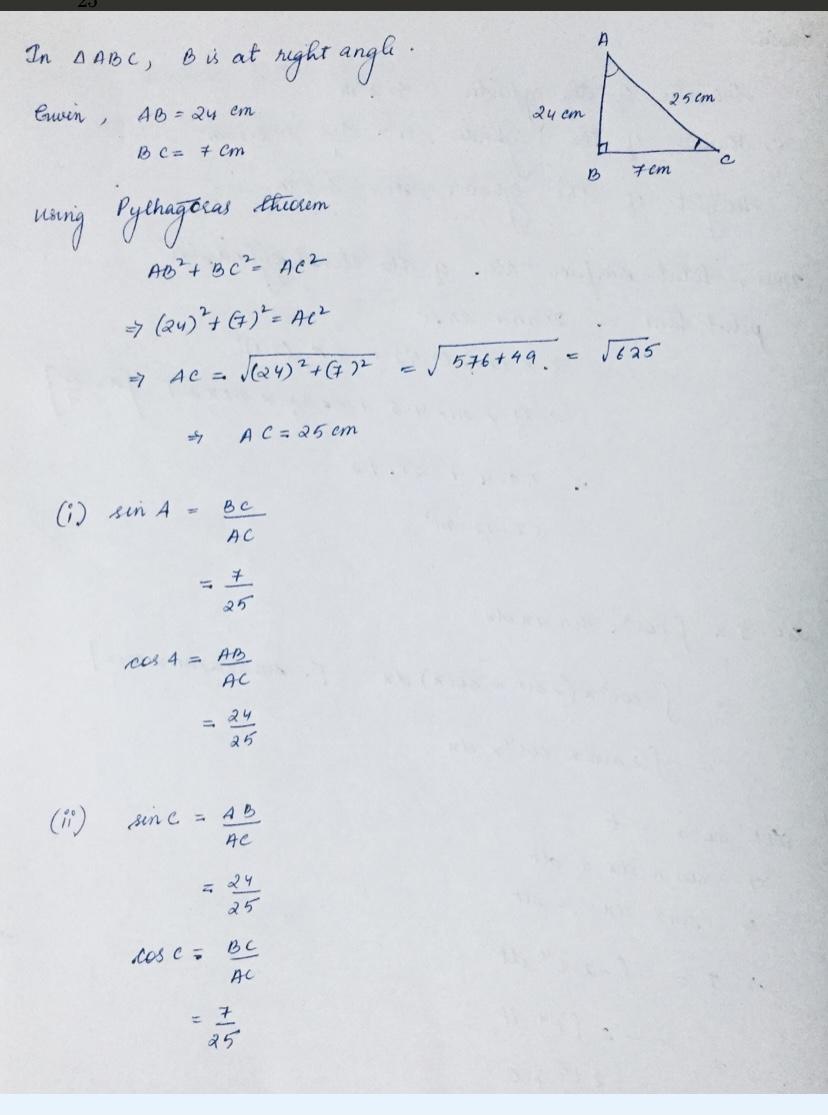 25
In △ABC, B is at right angle.
Given, AB = 24 cm
BC = 7 cm
A
24 cm
25 cm
B
7 cm
C
using Pythagoras theorem
AB² + BC² = AC²
⇒ (24)² + (7)² = AC²
⇒ AC = √(24)² + (7)² = √576 + 49 = √625
⇒ AC = 25 cm
(i) sin A = BC/AC
= 7/25
cos A = AB/AC
= 24/25
(ii) sin C = AB/AC
= 24/25
cos C = BC/AC
= 7/25